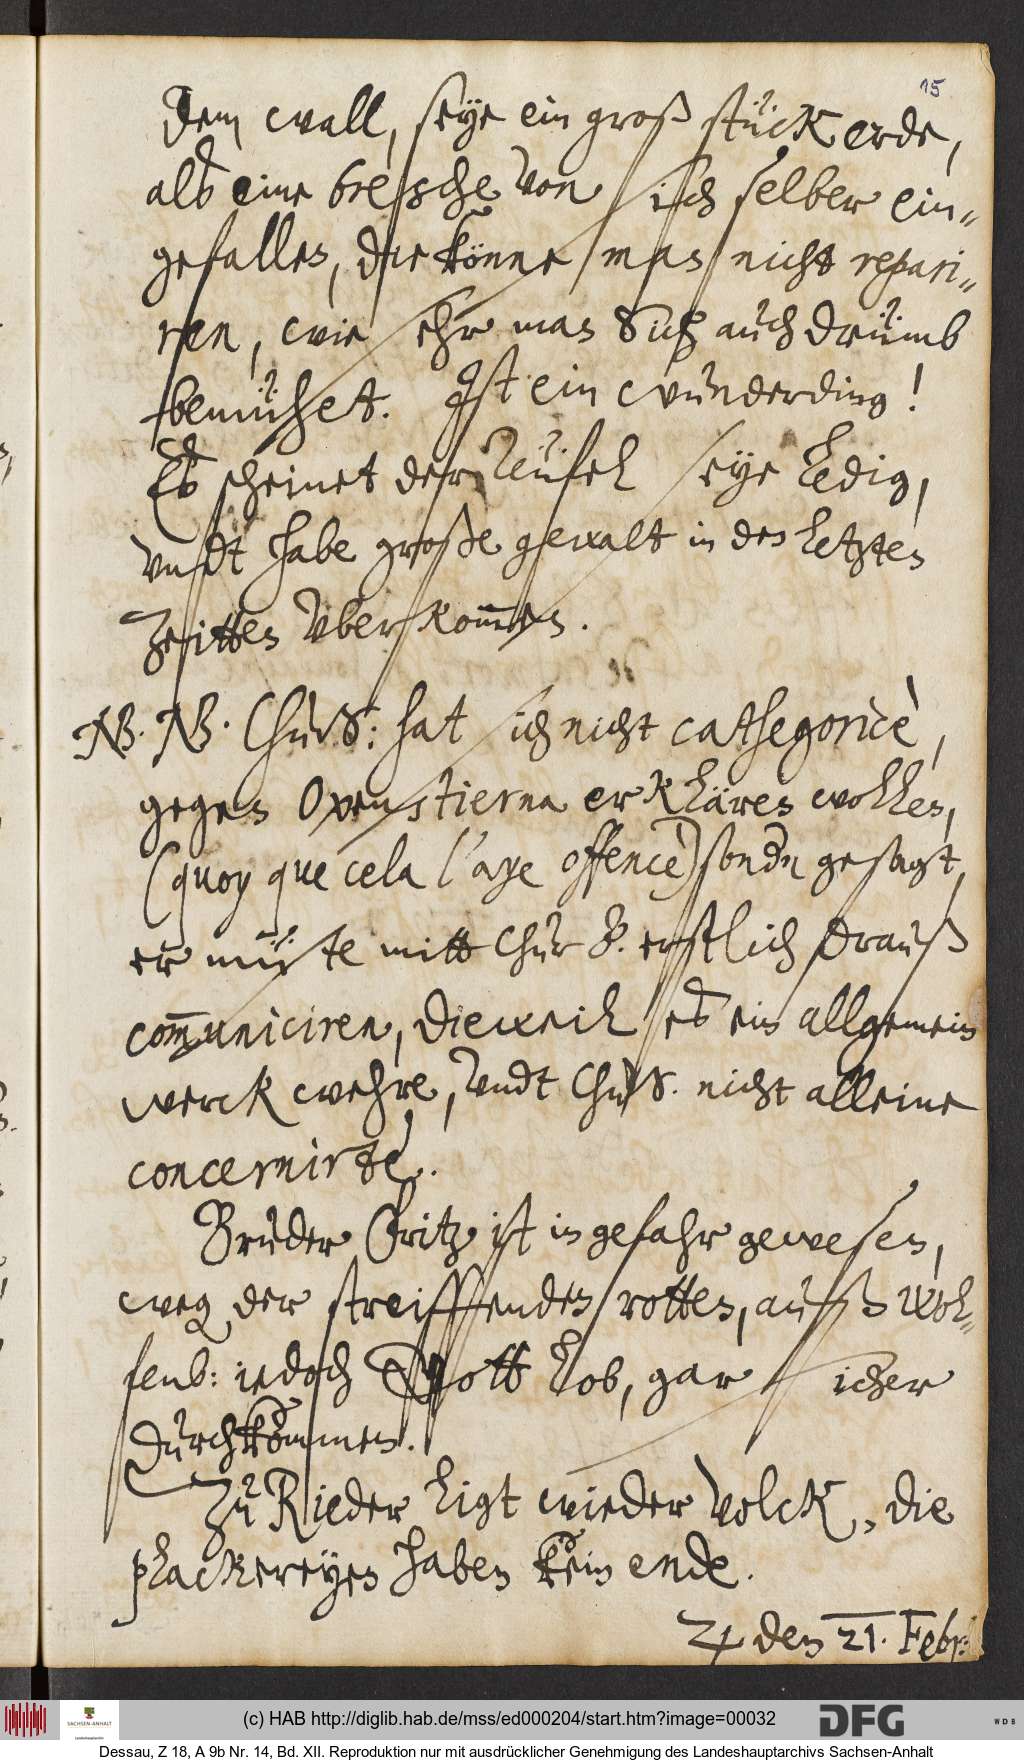 15
dem wall, seye ein groß stück erde,
alß eine bresche von sich selber ein„
gefallen, die könne man nicht repari„
ren, wie sehr man sich auch drumb
bemühet. Ist ein wunderding!
Es scheinet der Teüfel seye ledig,
undt habe große gewalt in den letzten
Zeitten uberkommen.
NB. NB. ChurS: hat sich nicht cathegoricè,
gegen Oxenstierna erklären wollen,
(quoy que cela l'aye offencè) sondern gesagt,
er müste mitt Chur B. erstlich drauß
communiciren, dieweil es ein allgemein
werck wehre, undt ChurS. nicht alleine
concernirte.
Bruder Fritz ist in gefahr gewesen,
weg der streiffenden rotten, auß Wol„
fenb: iedoch Gott lob, gar sicher
durchkommen.
Zu Rieder ligt wieder volck, die
plackereyen haben kein ende.
♃ den 21. Febr:
(c) HAB http://diglib.hab.de/mss/ed000204/start.htm?image=00032
SACHSEN-ANHALT
DFG
WDB
Dessau, Z 18, A 9b Nr. 14, Bd. XII. Reproduktion nur mit ausdrücklicher Genehmigung des Landeshauptarchivs Sachsen-Anhalt